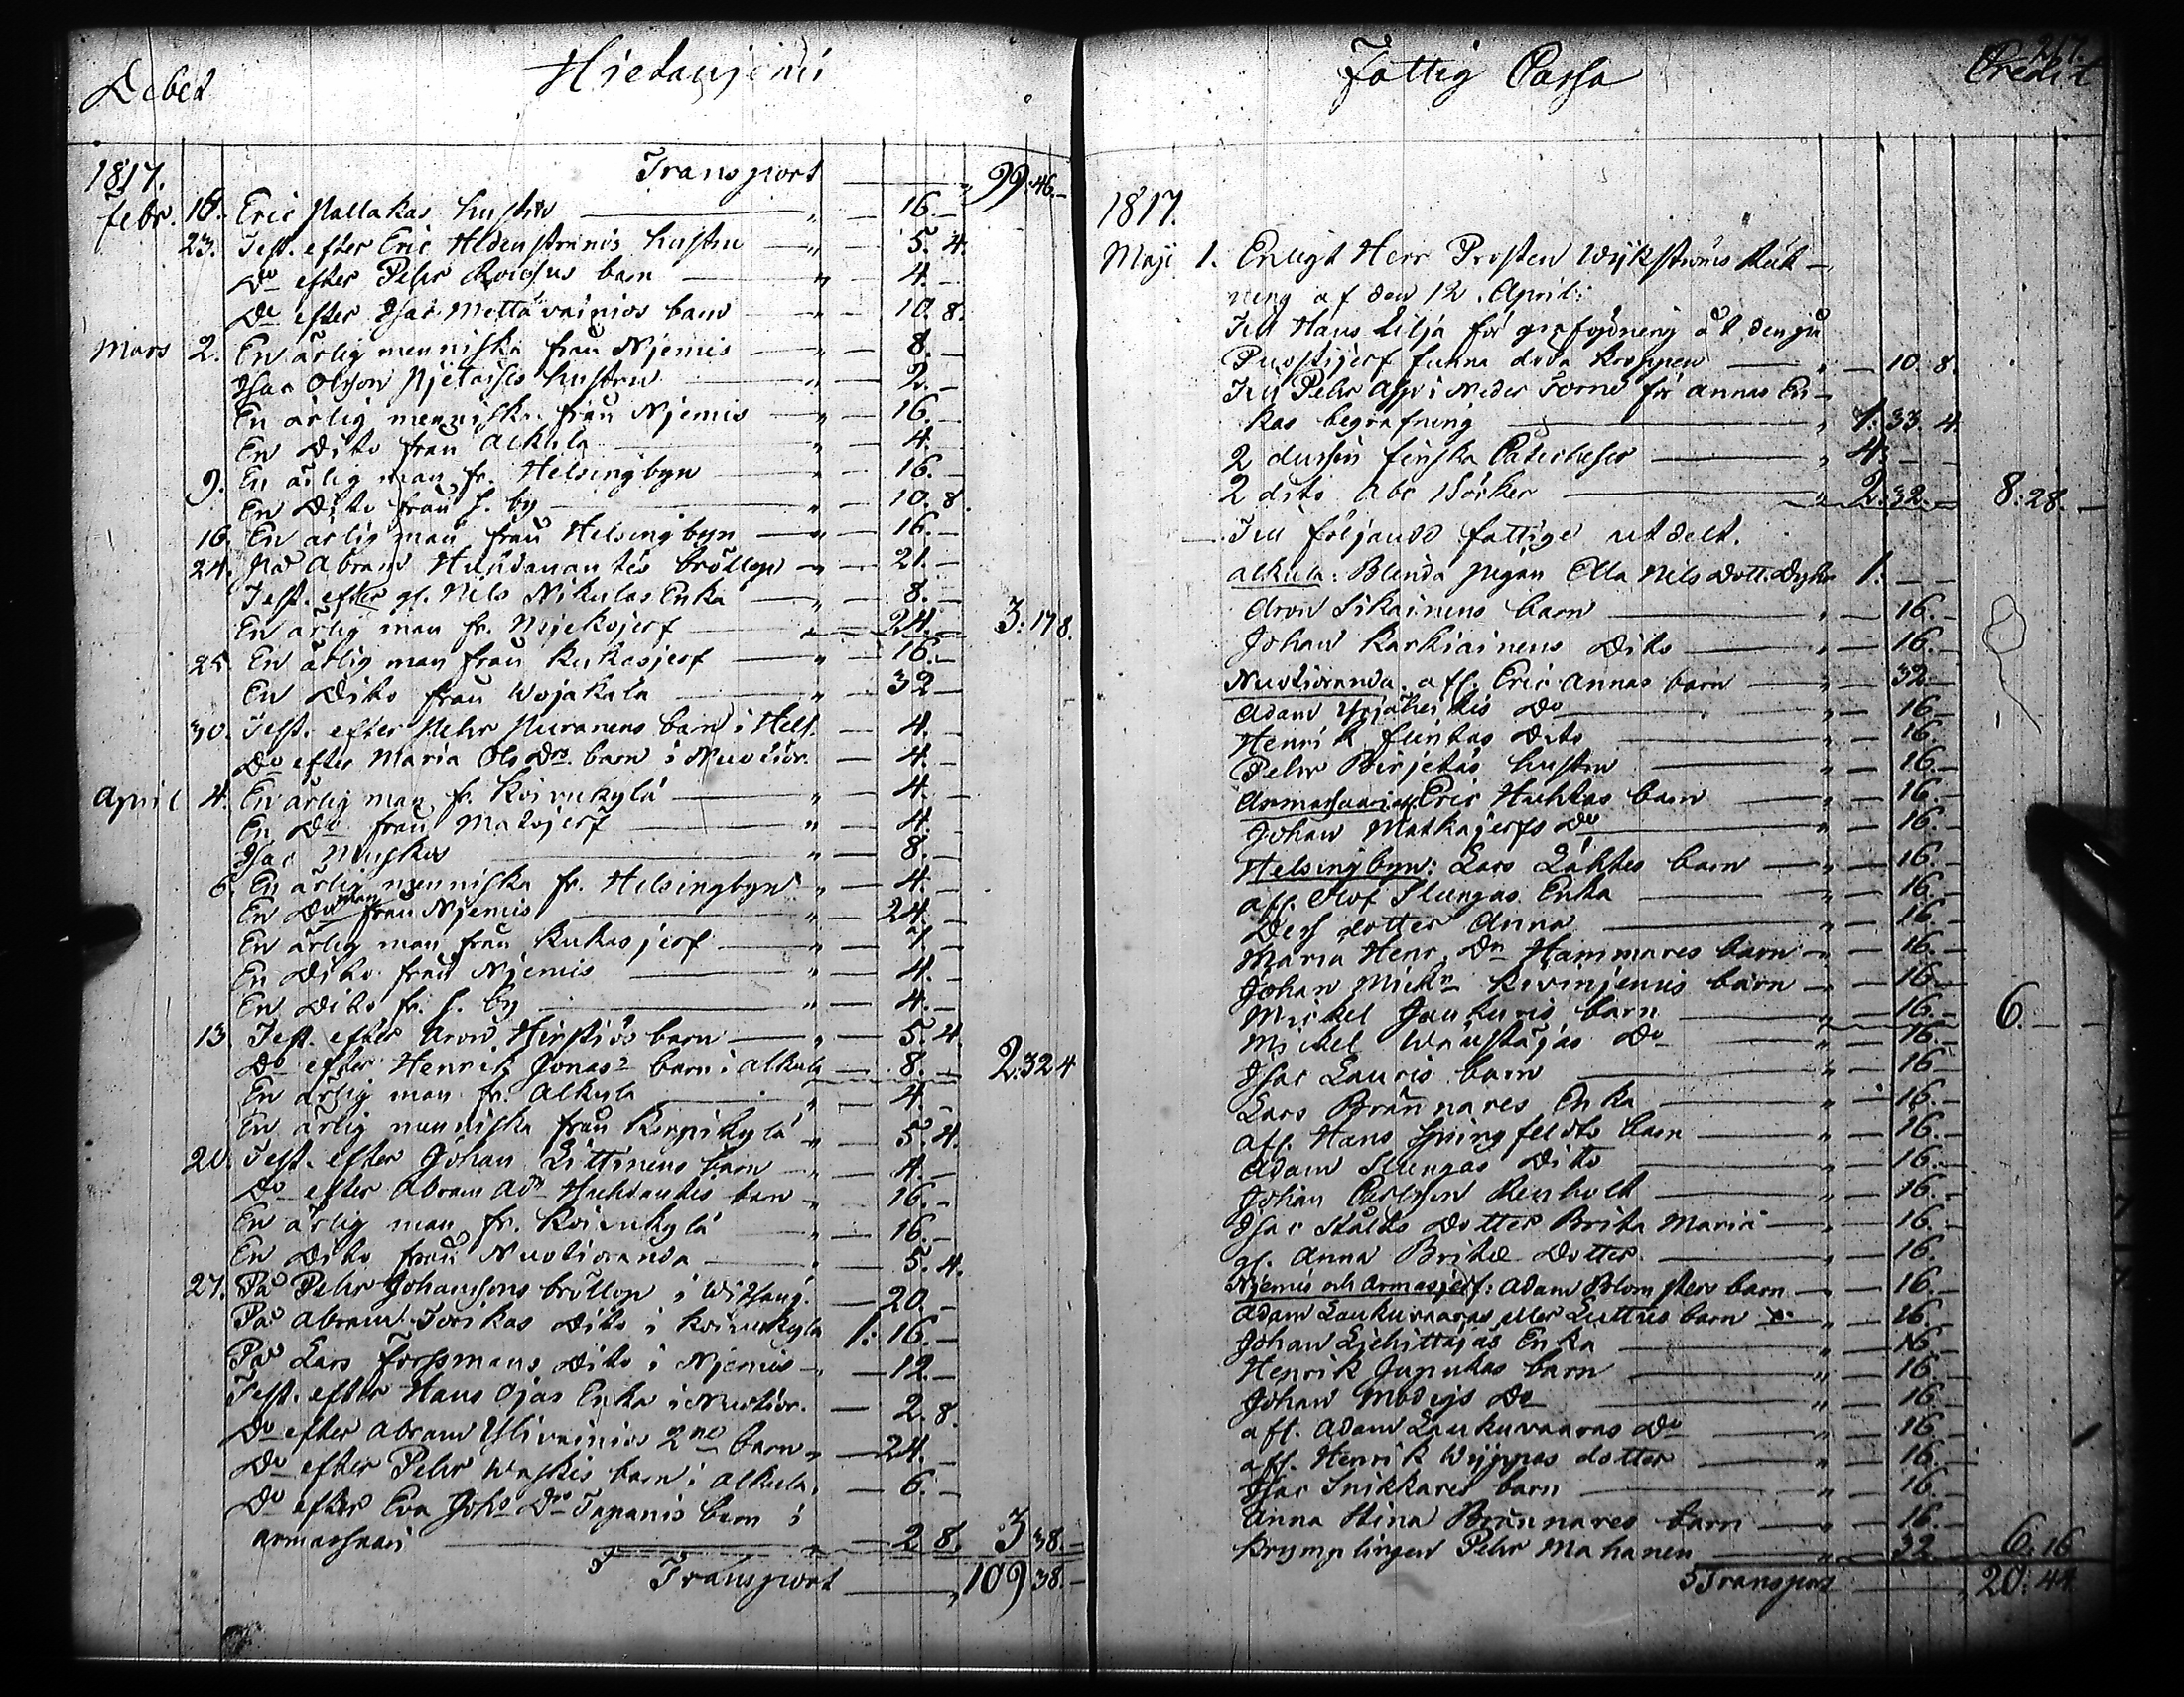 Debet Hietaniemi
1817. Transport 99:46.–
Febr. 16. Eric Pallakas hustru " 16.–
23. Test. efter Eric Hedenströms hustru " 5.4.
Do efter Pehr barn " 4.–
Do efter Isac Mettävainios barn " 10.8.
Mars 2. En ärlig menniska från Njemis " 8.–
Isac Olsson hustru " 2.–
En ärlig menniska från Njemis " 16.–
En Dito från Alkula " 4.
9. En ärlig man fr. Helsingbyn " 16.–
En Dito från s. by " 10.8.
16. En ärlig man från Helsingbyn " 16.–
24. På Abram bröllop " 21.–
Test. efter gl. Nils Nikulas Enka " 8.–
En ärlig man fr. " 24.– 3:17 8.
25. En ärlig man från Kukasjerf " 16.–
En Dito från Wojakala " 32–
30. Test. efter Pehr Puranens barn i Hels. 4.–
Do efter Maria Ols Dr. barn i Nuotior. 4.–
April 4. En ärlig man fr. Koivukylä " 4.–
En Do från Matojerf " 4.–
Isac " 8.–
6. En ärlig menniska fr. Helsingbyn " 4.–
En Do man från Njemis " 24.–
En ärlig man från Kukasjerf " 7.–
En Dito från Njemis " 4.–
En Dito fr. s. by " 4.–
13. Test. efter Arvid barn " 5.4.
Do efter Henrik Jonass barn i Alkula 8.– 2.32 4
En ärlig man fr. Alkula " 4.–
En ärlig menniska från Korpikylä " 5.4.
20. Test. efter Johan Littinens barn " 4.–
Do efter Abram Ads barn 16.–
En ärlig man fr. Koivukylä " 16.–
En Dito från Nuotioranda " 5.4.
27. På Pehr Johanssons bröllop i 20.–
På Abram Dito i Koivukylä 1:16.–
På Lars Forssmans Dito i Njemis 12.–
Test. efter Hans Ojas Enka i Nuotior. 2.8.
Do efter Abram Ylivainios 2ne barn " 24.–
Do efter Pehr barn i Alkula 6.–
Do efter Eva Johs Dr Tapanis barn i
Armassaari " 2 8. 3 38.–
Transport " 109 38.–
217.
Fattig Cassa Credit
1817.
Maji 1. Enligt Herr Prosten Wijkströms Räk-
ning af den 12. April:
Till Hans Lilja för åt den på
funna döda kroppen " 10.8.
Till Pehr Asp i Neder Torneå för Annas En-
kas begrafning " 1:33.4.
2 dussin finska Catecheser " 4:–
2 dito Abc Böcker " 2:32.– 8:28.–
Till följande fattige utdelt.
Alkula: Blinda pigan Ella Nils Dott. 1.–
Arvid Sikainens barn " 16.–
Johan Karkiainens Dito " 16.–
Nuotioranda. afl. Eric Annas barn " 32.–
Adam Do " 16.–
Henrik Dito " 16.
Pehr hustru " 16.–
Armassaari: Eric Huhtas barn " 16.–
Johan Matkajerfs Do " 16.–
Helsingbyn: Lars Lahtes barn " 16.–
afl. Olof Slungas Enka " 16.–
Dess dotter Anna " 16.–
Maria Henr. Dr Hammares barn " 16.–
Johan Micks barn " 16.–
Mickel barn " 16.– 6.–
Mickel Do " 16.–
Isac Lauris barn " 16.–
Lars Brännares Enka " 16.–
afl. Hans Springfeldts barn " 16.–
Adam Slungas Dito " 16.–
Johan Carlsson Renholt " 16.–
Isac Dotter Brita Maria " 16.–
gl. Anna Brita Dotter " 16.
Njemis och Armasjerf: Adam Blomsters barn 16.–
Adam Laukuvaaras eller barn " 16.
Johan Enka " 16.–
Henrik Junukas barn " 16.–
Johan Modigs Do " 16.
afl. Adam Laukuvaaras Do " 16.–
afl. Henrik dotter " 16.–
Isac Snikkares barn " 16.–
Anna Stina Brännares barn " 16.–
Krymplingen Pehr Mahanen " 32 6:16
Transport " 20:44.